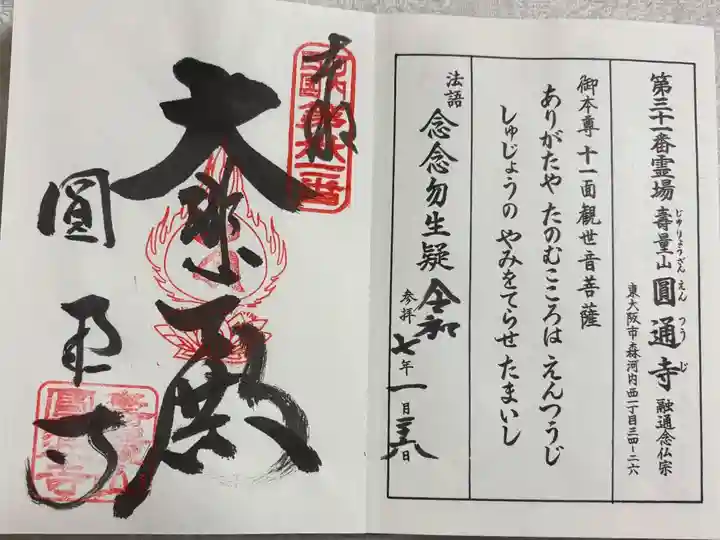 第三十一番霊場 壽量山 圓通寺 融通念仏宗
じゅりょうざん えんつうじ
東大阪市森河内西一丁目三四-二六
御本尊 十一面観世音菩薩
ありがたや たのむこころは えんつうじ
しゅじょうの やみをてらせ たまいし
法語 念念勿生疑
参拝 令和七年一月二八日
奉拝
大悲殿
圓通寺